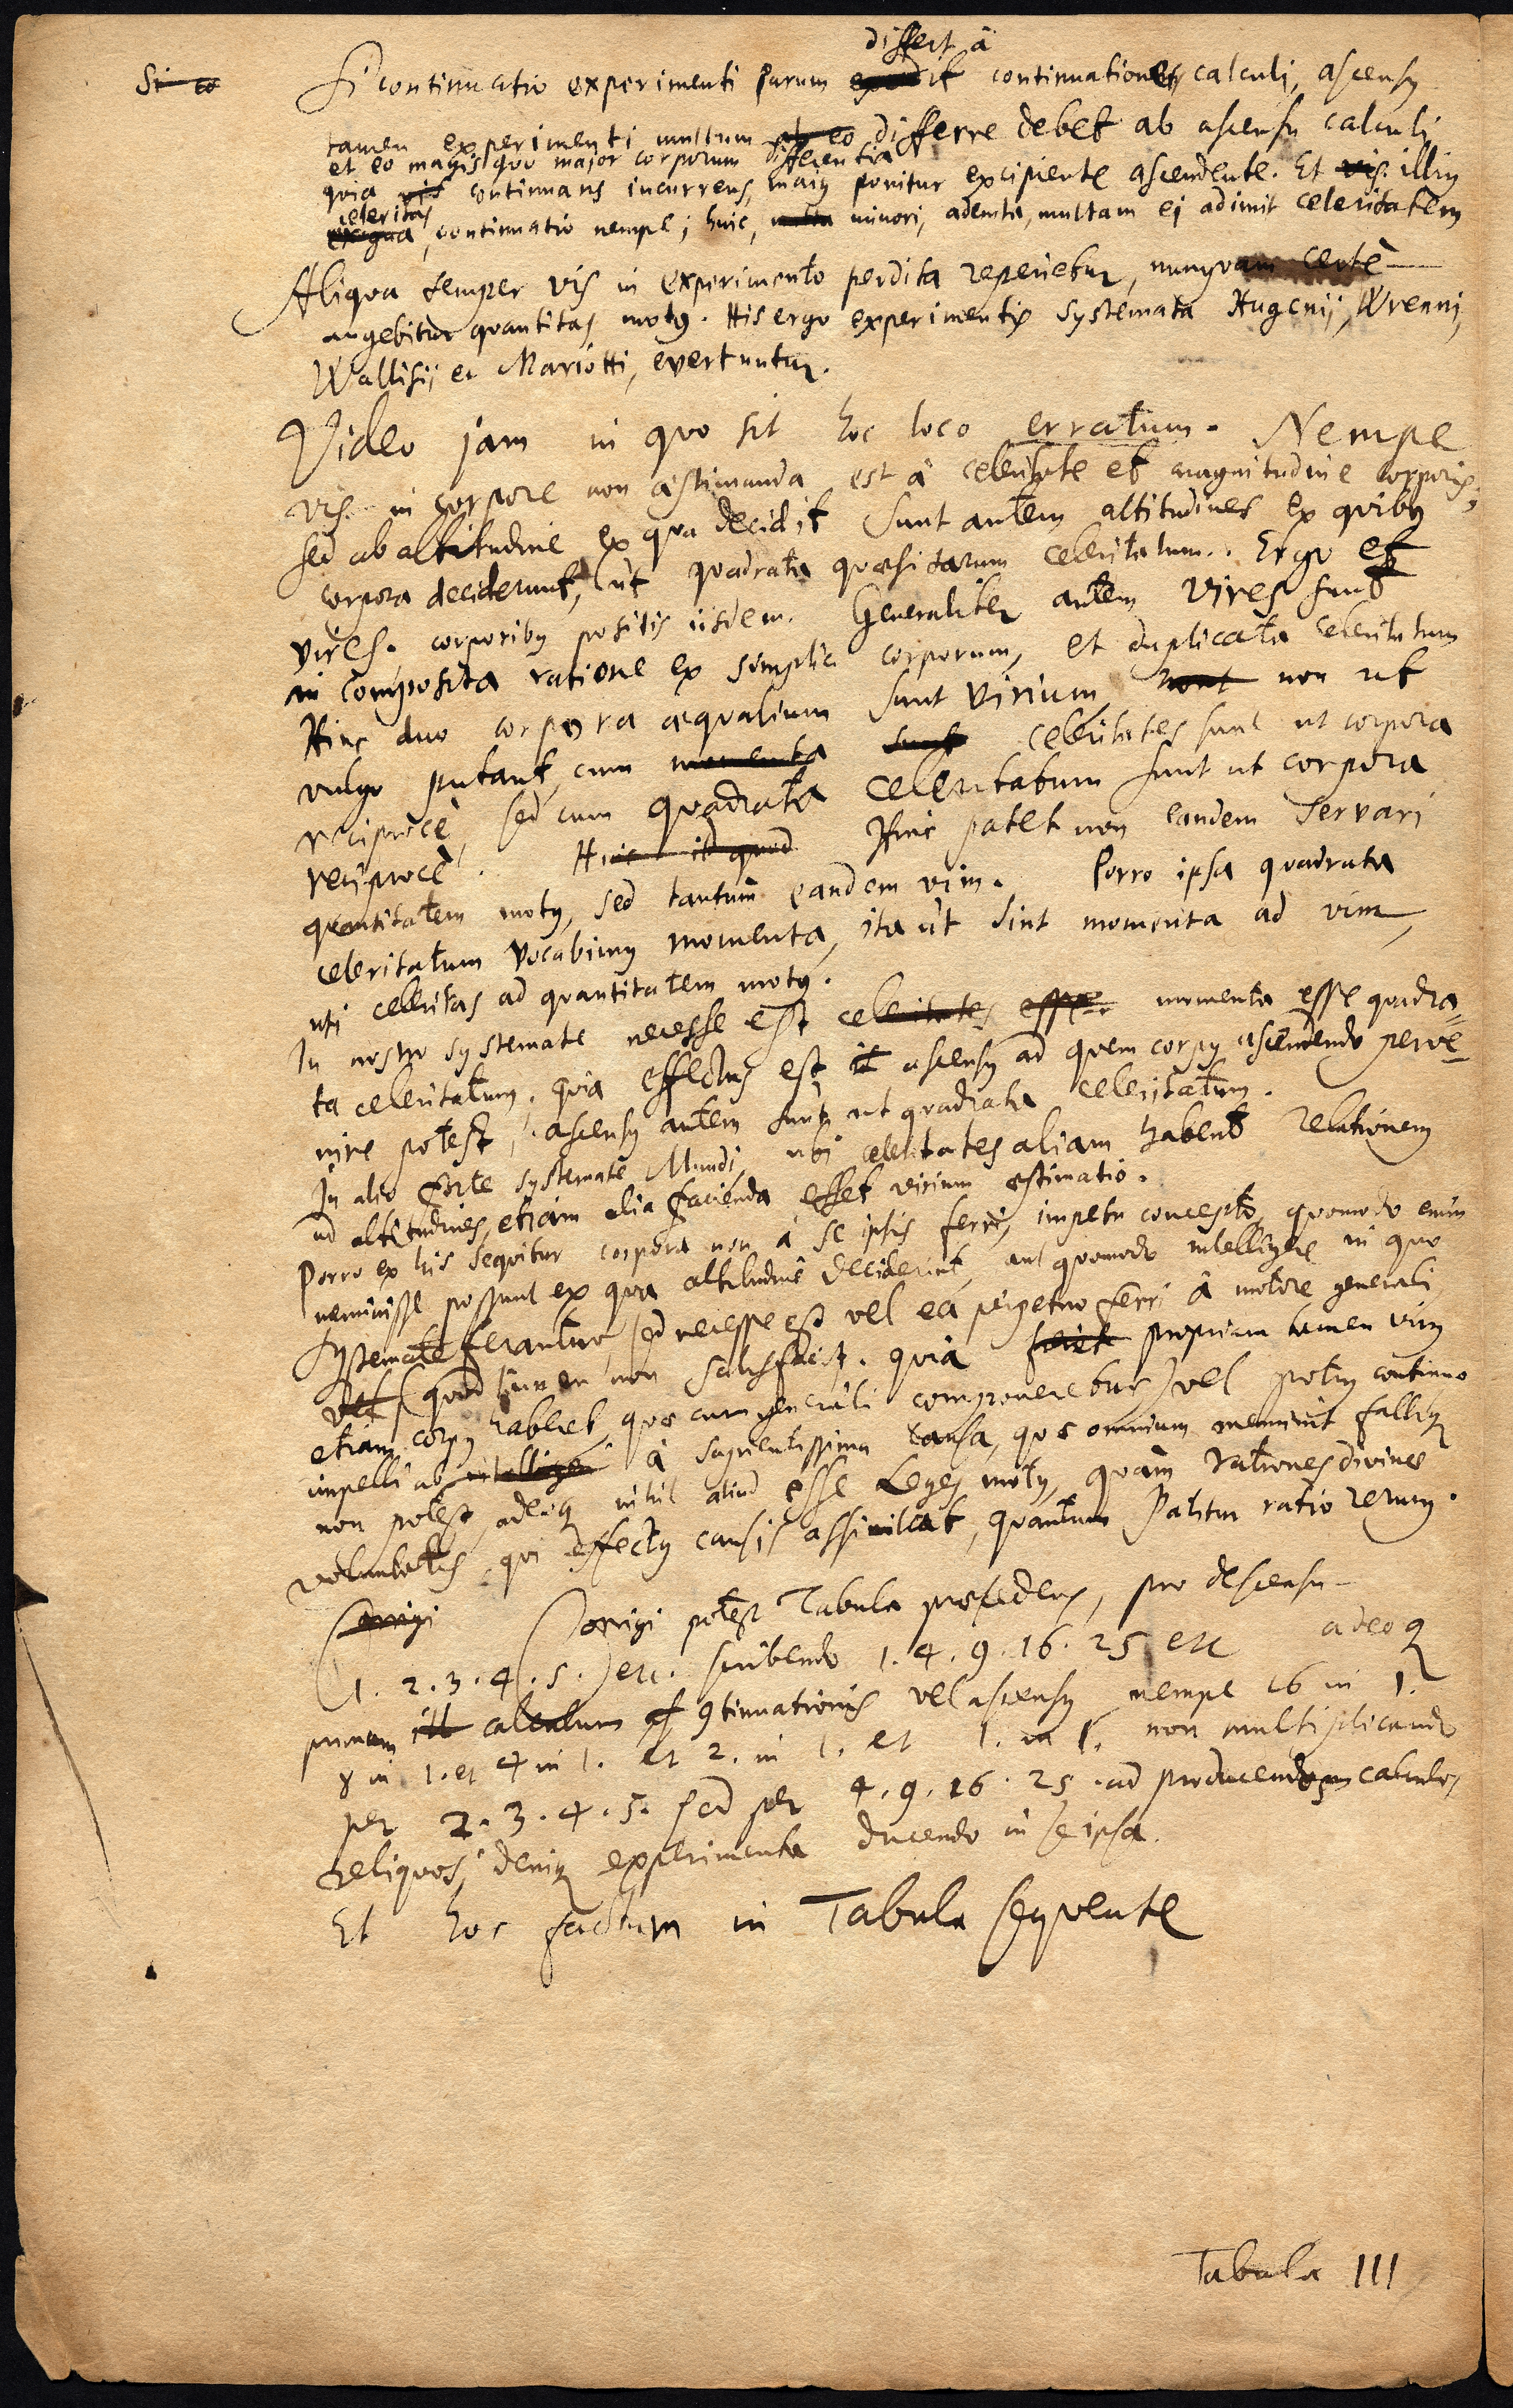 Si co
differt à
Si continuatio experimenti parum excedit continuationes calculi, ascensus
tamen experimenti multum ab eo differre debet ab ascensu calculi
et eo magis quo major corporum differentia
quia vis continuans incurrens, maius ponitur excipiente ascendente. Et vis illius
celeritas
exigua, continuatio nempe; huic, multa minori, ademta, multam ei adimit celeritatem
Aliqua semper vis in experimento perdita reperietur, nunquam certè
augebitur quantitas motus. His ergo experimentis systemata Hugenij, Wrenni,
Wallisij et Mariotti, evertuntur.
Video jam in quo sit hoc loco erratum. Nempe
vis in corpore non æstimanda est à celeritate et magnitudine corporis,
sed ab altitudine ex qua decidit Sunt autem altitudines ex quibus
corpora deciderunt, ut quadrata quæsitarum celeritatum. Ergo et
vires. corporibus positis iisdem. Generaliter autem vires sunt
in composita ratione ex simplici corporum, et duplicata celeritatum
Hinc duo corpora æqualium sunt virium non ut
vulgo putant, cum momenta sunt celeritates sunt ut corpora
reciprocè, sed cum quadrata celeritatum sunt ut corpora
reciprocè. Hinc id quod Hinc patet non eandem servari
quantitatem motus, sed tantum eandem vim. Porro ipsa quadrata
celeritatum vocabimus momenta, ita ut sint momenta ad vim,
uti celeritas ad quantitatem motus.
In nostro systemate necesse est celeritates esse momenta esse quadra=
ta celeritatum, quia effectus est it ascensus ad quem corpus ascendendo perve=
nire potest, ascensus autem sunt ut quadrata celeritatum.
In alio forte systemate Mundi, ubi celeritates aliam habent relationem
ad altitudines, etiam alia facienda esset virium æstimatio.
Porro ex his sequitur corpora non à se ipsis ferri, impetu concepto, quomodo enim
meminisse possunt ex qua altitudine deciderint, aut quomodo intelligere in quo
systemate ferantur, sed necesse est vel ea perpetuo ferri à motore generali
vel (quod tamen non satisfacit. quia propriam tamen vim
etiam corpus haberet, quæ cum generali componeretur) vel potius continuo
impelli ab intelligen à sapientissima causa, quæ omnium meminit falliq
non potest, adeoq nihil aliud esse Leges motus, quàm rationes divinæ
voluntatis, qui effectus causis assimilat, quantum patitur ratio rerum.
Corrigi Corrigi potest Tabula præcedens, pro descensu
(1. 2. 3. 4. 5.) etc. scribendo 1. 4. 9. 16. 25 etc adeoq
primam ill calculum 9tinuationis vel ascensus nempe 16 in 1.
8 in 1. et 4 in 1. et 2. in 1. et 1. in 1. non multiplicando
per 2. 3. 4. 5. sed per 4. 9. 16. 25. ad producendos calculos
reliquos, deniq experimenta ducendo in se ipsa.
Et hoc factum in Tabula sequente
Tabula III